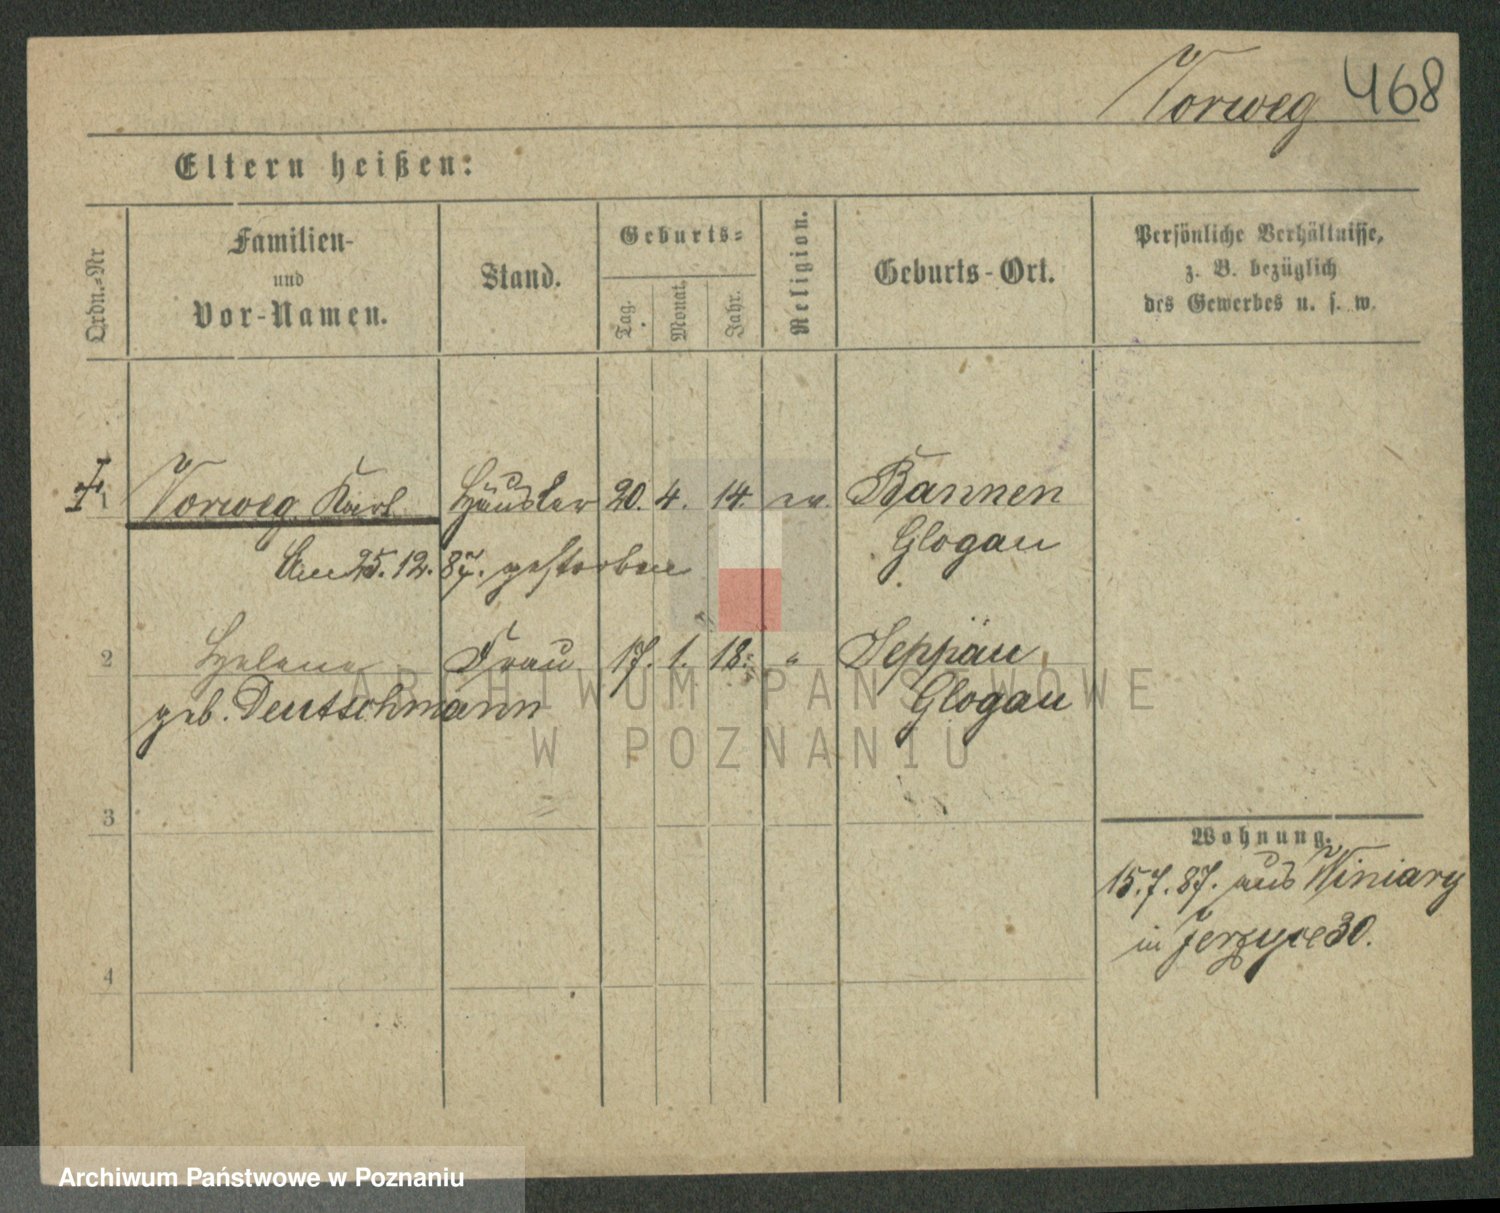 Vorweg 468
Eltern heißen:
Ordn.-Nr
Familien-
und
Vor-Namen.
Stand.
Geburts-
Tag.
Monat.
Jahr.
Religion.
Geburts-Ort.
Persönliche Verhältnisse,
z. B. bezüglich
des Gewerbes u. s. w.
1 Vorweg Karl Häusler 20. 4. 14. ev. Bannen
Glogau
Am 25. 12. 87. gestorben
2 Helene Frau 17. 1. 18. " Seppäu
geb. Deutschmann Glogau
ARCHIWUM PAŃSTWOWE
W POZNANIU
3
Wohnung.
15. 7. 87. aus Winiary
in Jerzyce 30.
4
Archiwum Państwowe w Poznaniu